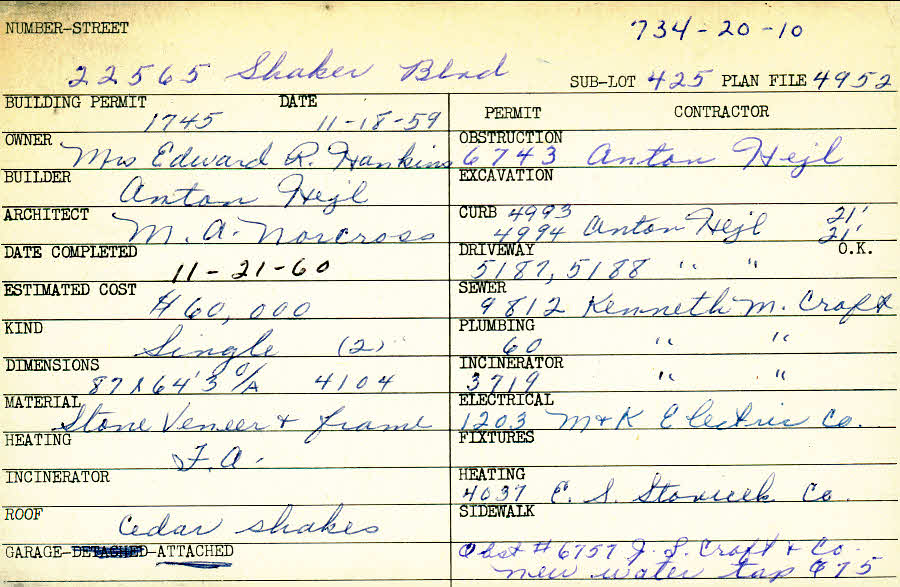 NUMBER-STREET 734-20-10
22565 Shaker Blvd SUB-LOT 425 PLAN FILE 4952
BUILDING PERMIT DATE
1745 11-18-59
OWNER Mrs Edward R. Hankins
BUILDER Anton Hejl
ARCHITECT M. A. Norcross
DATE COMPLETED
11-21-60
ESTIMATED COST
$60,000
KIND
Single (2)
DIMENSIONS
87 x 64'3 O/A 4104
MATERIAL
Stone Veneer & frame
HEATING
F.A.
INCINERATOR
ROOF Cedar shakes
GARAGE-DETACHED-ATTACHED
PERMIT CONTRACTOR
OBSTRUCTION
6743 Anton Hejl
EXCAVATION
CURB 4993 21'
4994 Anton Hejl 21'
DRIVEWAY O.K.
5187, 5188 " "
SEWER
9812 Kenneth M. Croft
PLUMBING
60 " "
INCINERATOR
3719 " "
ELECTRICAL
1203 M & K Electric Co.
FIXTURES
HEATING
4037 E. S. Stovicek Co.
SIDEWALK
Obst # 6757 J. S. Croft & Co.
new water tap 675